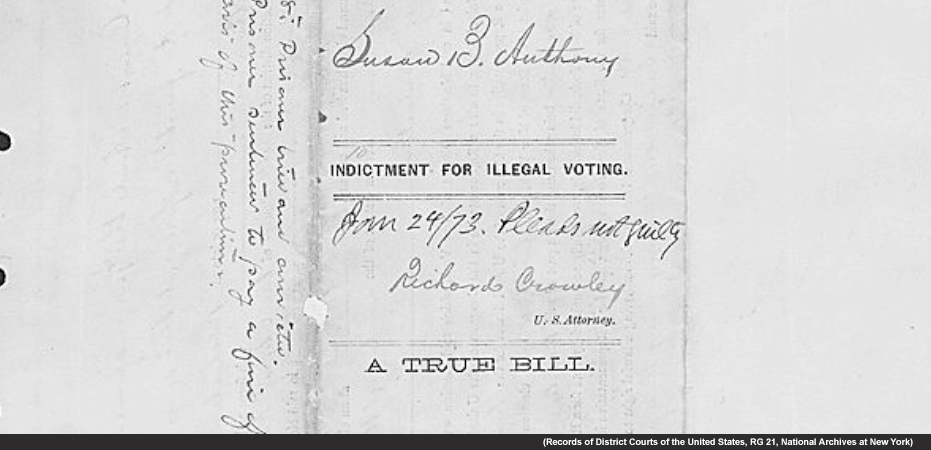 Susan B. Anthony
INDICTMENT FOR ILLEGAL VOTING.
Jan 24/73. Pleads not guilty
Richard Crowley
U. S. Attorney.
A TRUE BILL.
Prisoner tried and convicted.
Prisoner sentenced to pay a fine of
of this prosecution.
(Records of District Courts of the United States, RG 21, National Archives at New York)